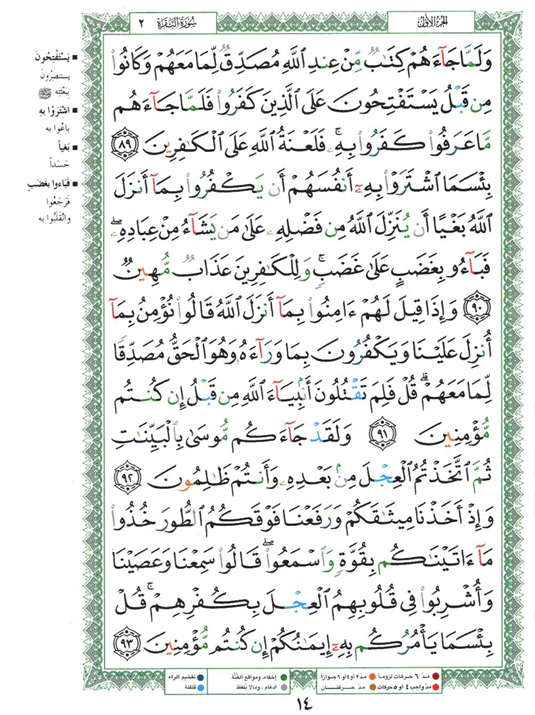 الجزء الأول
سُورَةُ البَقَرَةِ ٢
وَلَمَّا جَآءَهُمْ كِتَٰبٌ مِّنْ عِندِ ٱللَّهِ مُصَدِّقٌ لِّمَا مَعَهُمْ وَكَانُوا۟
مِن قَبْلُ يَسْتَفْتِحُونَ عَلَى ٱلَّذِينَ كَفَرُوا۟ فَلَمَّا جَآءَهُم
مَّا عَرَفُوا۟ كَفَرُوا۟ بِهِۦ ۚ فَلَعْنَةُ ٱللَّهِ عَلَى ٱلْكَٰفِرِينَ ٨٩
بِئْسَمَا ٱشْتَرَوْا۟ بِهِۦٓ أَنفُسَهُمْ أَن يَكْفُرُوا۟ بِمَآ أَنزَلَ
ٱللَّهُ بَغْيًا أَن يُنَزِّلَ ٱللَّهُ مِن فَضْلِهِۦ عَلَىٰ مَن يَشَآءُ مِنْ عِبَادِهِۦ ۖ
فَبَآءُو بِغَضَبٍ عَلَىٰ غَضَبٍ ۚ وَلِلْكَٰفِرِينَ عَذَابٌ مُّهِينٌ
٩٠ وَإِذَا قِيلَ لَهُمْ ءَامِنُوا۟ بِمَآ أَنزَلَ ٱللَّهُ قَالُوا۟ نُؤْمِنُ بِمَآ
أُنزِلَ عَلَيْنَا وَيَكْفُرُونَ بِمَا وَرَآءَهُۥ وَهُوَ ٱلْحَقُّ مُصَدِّقًا
لِّمَا مَعَهُمْ ۗ قُلْ فَلِمَ تَقْتُلُونَ أَنۢبِيَآءَ ٱللَّهِ مِن قَبْلُ إِن كُنتُم
مُّؤْمِنِينَ ٩١ وَلَقَدْ جَآءَكُم مُّوسَىٰ بِٱلْبَيِّنَٰتِ
ثُمَّ ٱتَّخَذْتُمُ ٱلْعِجْلَ مِنۢ بَعْدِهِۦ وَأَنتُمْ ظَٰلِمُونَ ٩٢
وَإِذْ أَخَذْنَا مِيثَٰقَكُمْ وَرَفَعْنَا فَوْقَكُمُ ٱلطُّورَ خُذُوا۟
مَآ ءَاتَيْنَٰكُم بِقُوَّةٍ وَٱسْمَعُوا۟ ۖ قَالُوا۟ سَمِعْنَا وَعَصَيْنَا
وَأُشْرِبُوا۟ فِى قُلُوبِهِمُ ٱلْعِجْلَ بِكُفْرِهِمْ ۚ قُلْ
بِئْسَمَا يَأْمُرُكُم بِهِۦٓ إِيمَٰنُكُمْ إِن كُنتُم مُّؤْمِنِينَ ٩٣
يَسْتَفْتِحُونَ
يستنصرُون
ببعثتِه ﷺ
اشْتَرَوْا به
باعُوا به
بَغْياً
حَسَداً
فَبَاءُوا بغضبٍ
فرَجَعُوا
وانْقلَبُوا به
مدّ ٦ حركات لزوماً
مدّ ٢ أو ٤ أو ٦ جوازاً
إخفاء، ومواقع الغُنَّة
تفخيم الراء
مدّ واجب ٤ أو ٥ حركات
مدّ حركتان
إدغام، وما لا يُلفَظ
قلقلة
١٤